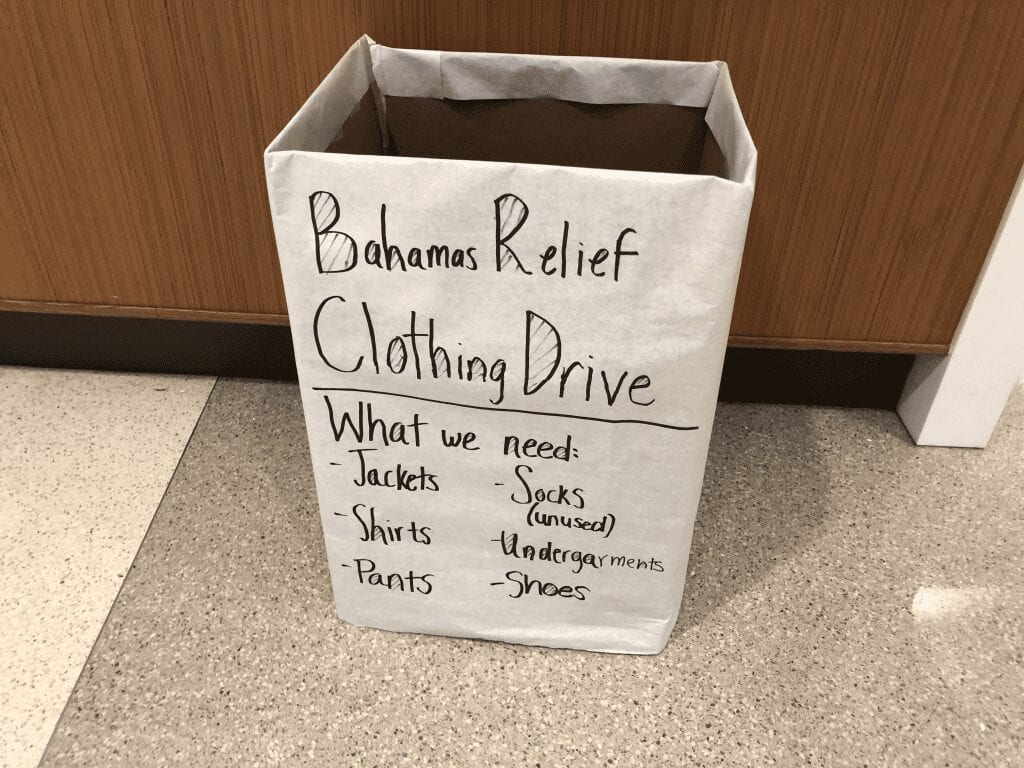 Bahamas Relief
Clothing Drive
What we need:
- Jackets
- Shirts
- Pants
- Socks
(unused)
- Undergarments
- Shoes